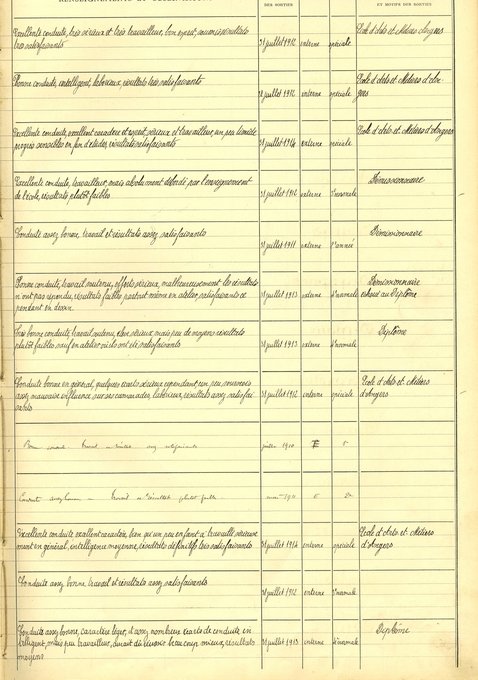 DES SORTIES
ET MOTIFS DES SORTIES
Excellente conduite, très sérieux et très travailleur, bon esprit, résultats
très satisfaisants
31 juillet 1912 interne spéciale
Ecole d'Arts et Métiers Angers
Bonne conduite, intelligent, laborieux, résultats très satisfaisants
31 juillet 1912 interne spéciale
Ecole d'Arts et Métiers d'An-
gers
Excellente conduite, excellent caractère et esprit, sérieux et travailleur, un peu timide
progrès sensibles en fin d'études, résultats satisfaisants
31 juillet 1914 interne spéciale
Ecole d'Arts et Métiers d'Angers
Excellente conduite, travailleur, mais absolument débordé par l'enseignement
de l'école, résultats plutôt faibles
31 juillet 1912 externe normale
Démissionnaire
Conduite assez bonne, travail et résultats assez satisfaisants
31 juillet 1911 externe année
Démissionnaire
Bonne conduite, travail soutenu, efforts sérieux, malheureusement les résultats
n'ont pas répondu, résultats faibles partout même en atelier, satisfaisants ce
pendant en dessin.
31 juillet 1913 externe normale
Démissionnaire
échoué au Diplôme
Très bonne conduite, travail soutenu, élève sérieux mais peu de moyens résultats
plutôt faibles sauf en atelier où ils ont été satisfaisants
31 juillet 1913 externe normale
Diplôme
Conduite bonne en général, quelques écarts sérieux cependant, un peu sournois
assez mauvaise influence sur ses camarades, laborieux, résultats assez satisfai-
sants
31 juillet 1912 interne spéciale
Ecole d'Arts et Métiers
d'Angers
Bonne conduite. Travail et résultats assez satisfaisants
juillet 1910 E
Conduite assez bonne Travail et résultats plutôt faibles
1911
Excellente conduite excellent caractère, bien qu'un peu enfant a travaillé sérieuse
ment en général, intelligence moyenne, résultats définitifs très satisfaisants
31 juillet 1914 interne spéciale
Ecole d'Arts et Métiers
d'Angers
Conduite assez bonne, travail et résultats assez satisfaisants
31 juillet 1912 interne normale
Conduite assez bonne, caractère léger, d'assez nombreux écarts de conduite, in
telligent, mais peu travailleur, aurait dû réussir beaucoup mieux, résultats
moyens
31 juillet 1913 interne normale
Diplôme